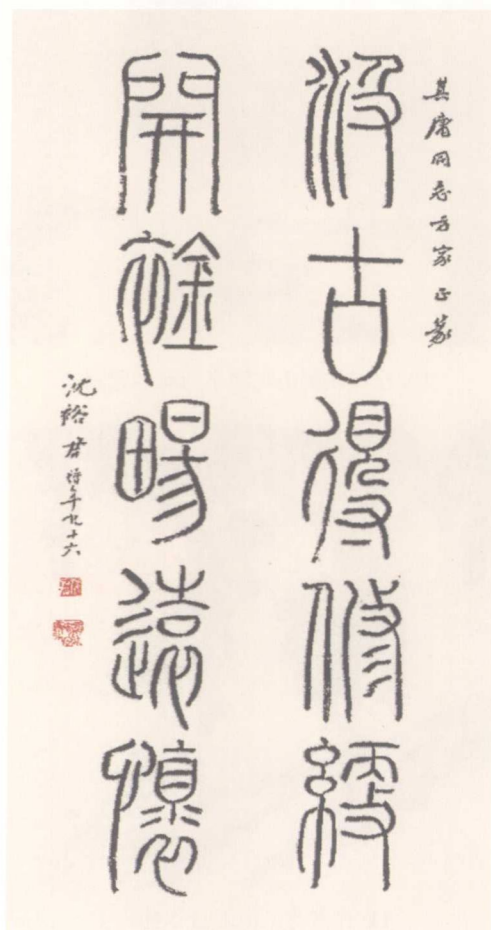 其庸同志方家正篆
汲古得修綆
開䘳畼遠懷
沈裕君時年九十六